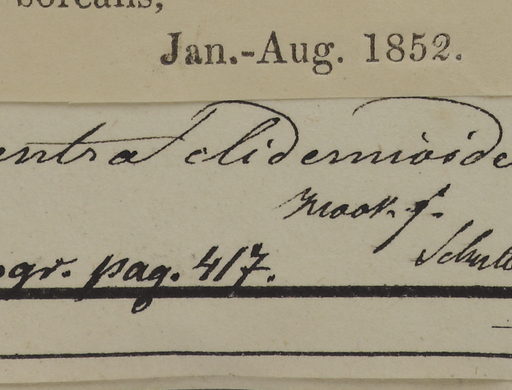 borealis,
Jan.-Aug. 1852.
entra clidemioide
Hook. f.
Schult
ogr. pag. 417.